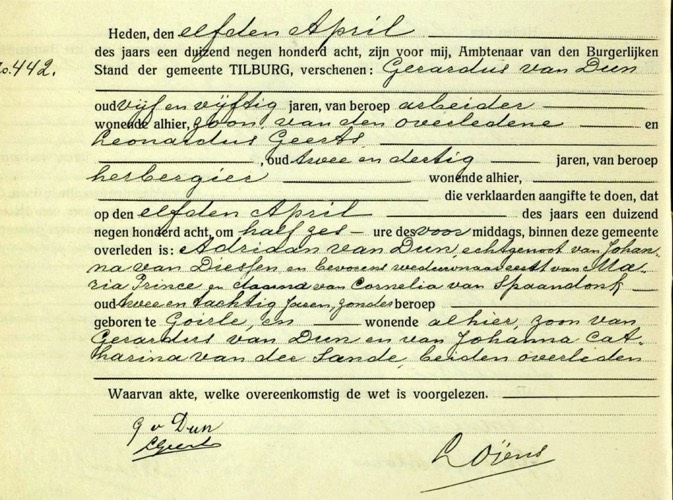 Heden, den elfden April
des jaars een duizend negen honderd acht, zijn voor mij, Ambtenaar van den Burgerlijken
No. 442. Stand der gemeente TILBURG, verschenen: Gerardus van Dun
oud vijf en vijftig jaren, van beroep arbeider
wonende alhier, zoon van den overledene en
Leonardus Geerts
, oud twee en dertig jaren, van beroep
herbergier wonende alhier,
die verklaarden aangifte te doen, dat
op den elfden April des jaars een duizend
negen honderd acht, om half zes ure des voor middags, binnen deze gemeente
overleden is: Adriaan van Dun, echtgenoot van Johan-
na van Diessen, en bevorens weduwnaar eerst van Ma-
ria Prince en daarna van Cornelia van Spaandonk
oud twee en tachtig jaren, zonder beroep
geboren te Goirle, en wonende alhier, zoon van
Gerardus van Dun en van Johanna Cat-
harina van der Sande, beiden overleden
Waarvan akte, welke overeenkomstig de wet is voorgelezen.
G v Dun
LGeerts